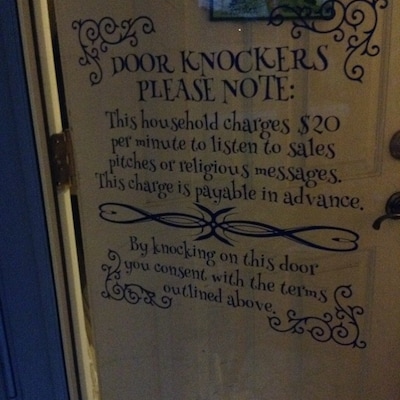 DOOR KNOCKERS
PLEASE NOTE:
This household charges $20
per minute to listen to sales
pitches or religious messages.
This charge is payable in advance.
By knocking on this door
you consent with the terms
outlined above.